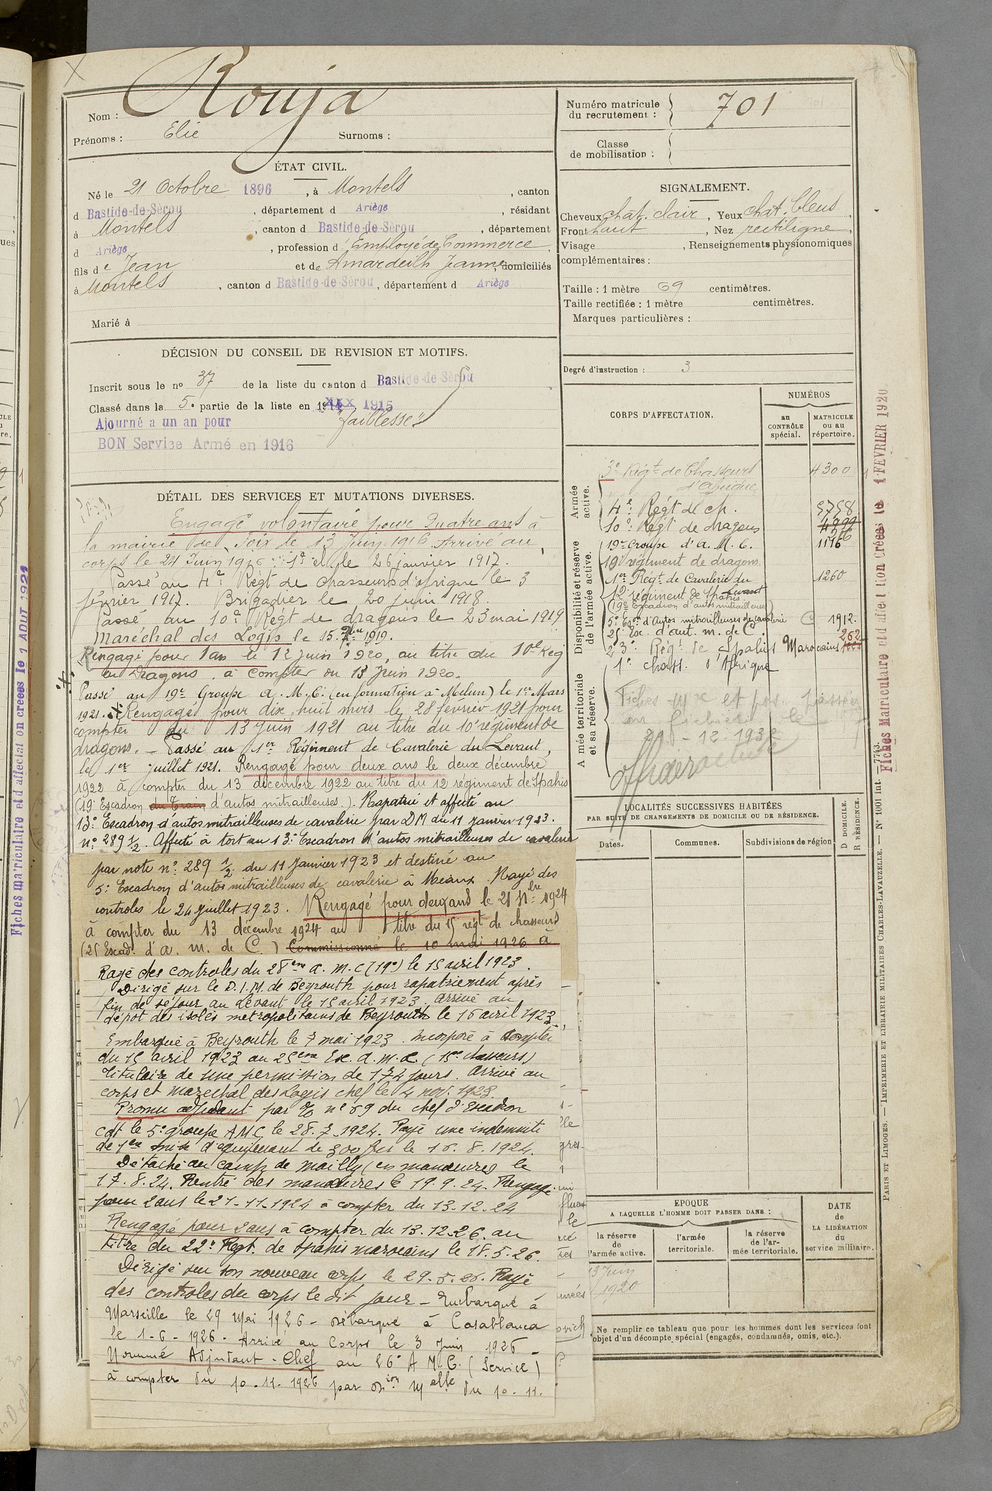 Nom : Rouja
Prénoms : Elie Surnoms :
ÉTAT CIVIL.
Né le 21 Octobre 1896, à Montels, canton
d Bastide-de-Sérou, département d Ariège, résidant
à Montels, canton d Bastide-de-Sérou, département
d Ariège, profession d'Employé de Commerce,
fils de Jean et de Amardeilh Jeanne, domiciliés
à Montels, canton d Bastide-de-Sérou, département d Ariège
Marié à
DÉCISION DU CONSEIL DE REVISION ET MOTIFS.
Inscrit sous le nº 37 de la liste du canton d Bastide-de-Sérou
Classé dans la 5e partie de la liste en 1915
Ajourné a un an pour "faiblesse"
BON Service Armé en 1916
DÉTAIL DES SERVICES ET MUTATIONS DIVERSES.
Engagé volontaire pour Quatre ans à
la mairie de Foix le 13 Juin 1916. Arrivé au
corps le 21 Juin 1916 le 26 janvier 1917.
Passé au 4e Régt de chasseurs d'afrique le 3
février 1917. Brigadier le 20 juin 1918
Passé au 10e Régt de dragons le 23 mai 1919
Maréchal des Logis le 15 1919.
Rengagé pour 1 an le 12 juin 1920, au titre du 10e Rég
de Dragons, à compter du 13 Juin 1920.
Passé au 19e Groupe A. M. C. (en formation à Melun) le 1er Mars
1921. Rengagé pour dix huit mois le 28 février 1921 pour
compter du 13 juin 1921 au titre du 10e régiment de
dragons. - Passé au 1er Régiment de Cavalerie du Levant,
le 1er juillet 1921. Rengagé pour deux ans le deux décembre
1922 à compter du 13 décembre 1922 au titre du 12e régiment de Spahis
(19e Escadron du Train d'autos mitrailleuses). Rapatrié et affecté au
13e Escadron d'autos mitrailleuses de cavalerie par D.M. du 11 janvier 1923.
nº 289 1/2. Affecté à tort au 13e Escadron d'autos mitrailleuses de cavalerie
par note nº 289 1/2 du 11 Janvier 1923 et destiné au
5e Escadron d'autos mitrailleuses de cavalerie à Meaux. Rayé des
controles le 24 Juillet 1923. Rengagé pour deux ans le 21 9bre 1924
à compter du 13 décembre 1924 au titre du 15e régt de chasseurs
(25 Escad. d'a. m. de C.) Commissionné le 10 mai 1926 à
Rayé des controles du 28ème a. m. c (19e) le 15 avril 1923.
Dirigé sur le D.I.M. de Beyrouth pour rapatriement après
fin de séjour au Levant le 15 avril 1923. arrivé au
dépot des isolés métropolitains de Beyrouth le 16 avril 1923,
Embarqué à Beyrouth le 7 mai 1923. Incorporé à compter
du 15 avril 1923 au 25ème Esc. a. m. c. (15e chasseurs)
titulaire de une permission de 174 jours. arrivé au
corps et maréchal des logis chef le 4 nov. 1923
Promu adjudant par nº 69 du chef d'Escadron
cdt le 5e groupe AMC le 28.7.1924. Payé une indemnité
de 1ère mise d'équipement de 300 frcs le 16.8.1924.
Détaché au camp de Mailly (en manœuvres) le
17.8.24. Rentré des manœuvres le 19.9.24. Rengagé
pour 2 ans le 21-11-1924 à compter du 13-12-24
Rengagé pour 2 ans à compter du 13.12.26. au
titre du 22e Regt. de Spahis marocains le 18.5.26.
Dirigé sur son nouveau corps le 29.5.26. Rayé
des controles du corps le dit jour - Embarqué à
Marseille le 29 Mai 1926 - Débarqué à Casablanca
le 1-6-1926. Arrivé au Corps le 3 Juin 1926 -
Nommé Adjudant-Chef au 26e A.M.C. (Service)
à compter du 10.11.1926 par Don Mlle du 10.11.
Numéro matricule du recrutement : 701
Classe de mobilisation :
SIGNALEMENT.
Cheveux chat. clair, Yeux chat. bleus,
Front haut, Nez rectiligne,
Visage , Renseignements physionomiques
complémentaires :
Taille : 1 mètre 69 centimètres.
Taille rectifiée : 1 mètre centimètres.
Marques particulières :
Degré d'instruction : 3
CORPS D'AFFECTATION.
NUMÉROS
au CONTRÔLE spécial.
MATRICULE ou au répertoire.
Armée active.
Disponibilité et réserve de l'armée active.
Armée territoriale et sa réserve.
3e Régt de Chasseurs d'afrique 4300
4e Régt de ch. 5758
10e Régt de dragons
19e Groupe d'A. M. C. 1176
19e régiment de dragons.
1er Régt de Cavalerie du Levant 1260
12e régiment de Spahis
(19e Escadron d'automitrailleuses)
5e Esc. d'Autos mitrailleuses de cavalerie C 1912.
25 Esc. d'aut. m. de C.
23e Régt de Spahis Marocains 262
1er chass. d'Afrique
Fiches et pos. passées
au fichier le
28-12-1932
LOCALITÉS SUCCESSIVES HABITÉES
PAR SUITE DE CHANGEMENTS DE DOMICILE OU DE RÉSIDENCE.
Dates.
Communes.
Subdivisions de région
D DOMICILE.
R RÉSIDENCE.
EPOQUE
A LAQUELLE L'HOMME DOIT PASSER DANS :
la réserve de l'armée active.
l'armée territoriale.
la réserve de l'armée territoriale.
DATE de LA LIBÉRATION du service militaire.
13 Juin 1920
Ne remplir ce tableau que pour les hommes dont les services font
l'objet d'un décompte spécial (engagés, condamnés, omis, etc.).
Fiches Matriculaire et d'affectation créées le 1 FEVRIER 1920
Fiches matriculaire et d'affectation créées le 1 AOUT 1921
PARIS ET LIMOGES. — IMPRIMERIE ET LIBRAIRIE MILITAIRES CHARLES-LAVAUZELLE. — Nº 1001 Int.